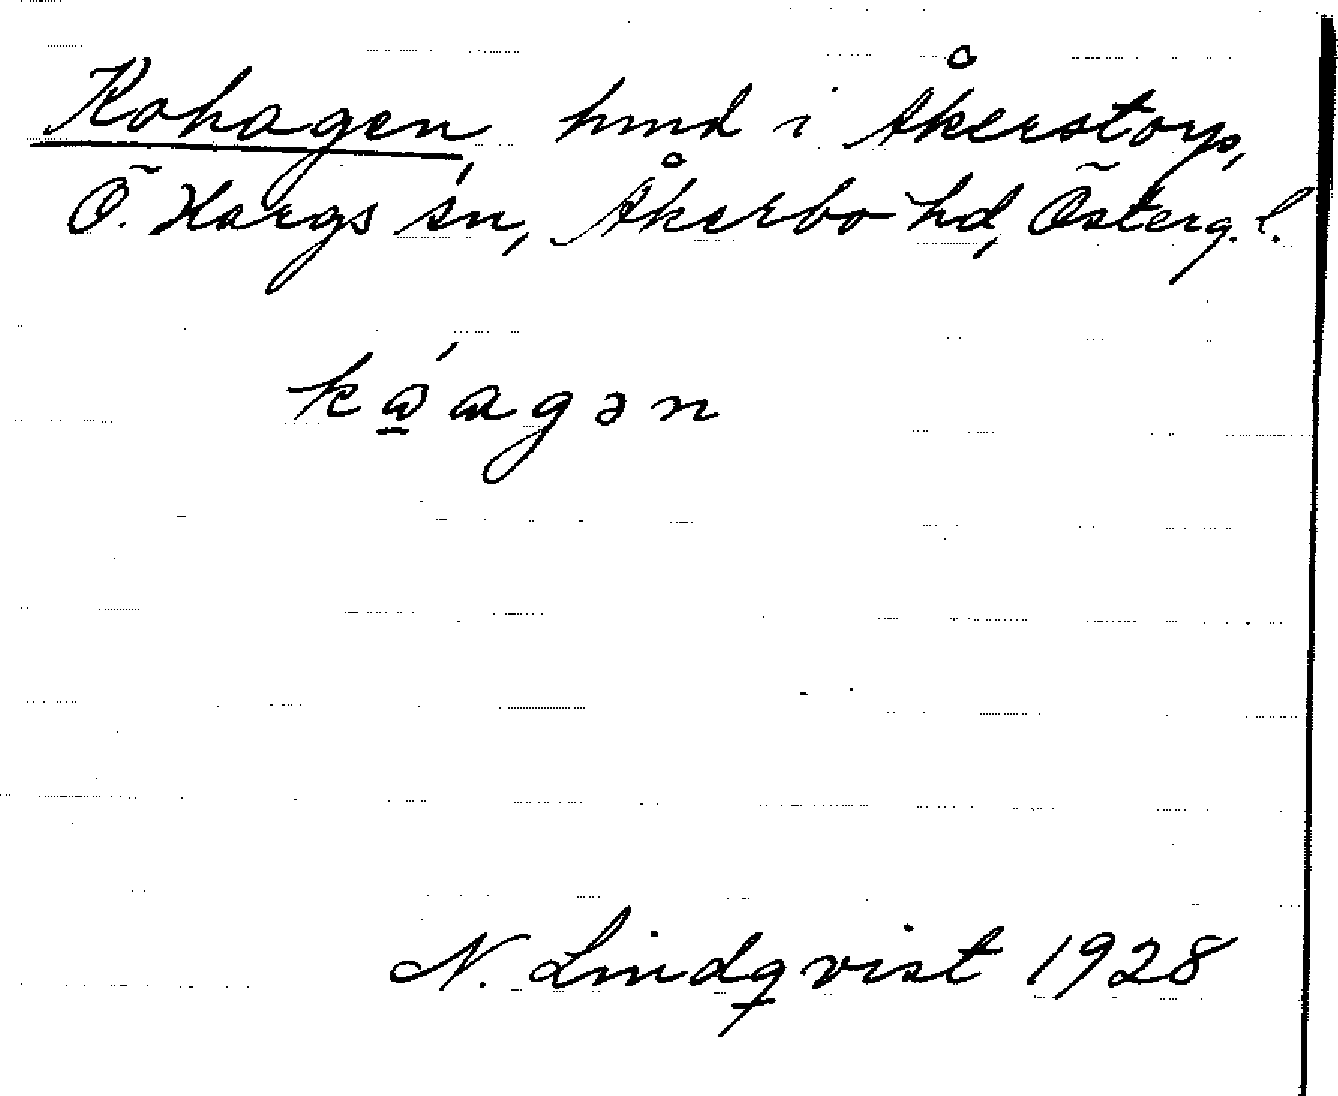 Kohagen, hmd i Åkerstorp,
Ö. Hargs sn, Åkerbo hd, Österg. l.
N. Lindqvist 1928